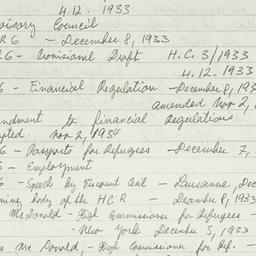 4.12. 1933
visory Council
RG - December 8, 1933
RG - Provisional Draft H.C. 3/1933
4.12.1933
G - Financial Regulation - December 8, 193
amended Nov 2,
ndment to financial Regulations
pted Nov 2, 1934
G - Passports for Refugees - December 7,
G - Employment
G - Speech by Viscount Cecil - Lausanne, Dec
ning body of the H C R - December 8, 1933
McDonald - High Commissioner for Refugees -
New York December 5, 1933
Mc Donald, - High Commissioner for Ref. -